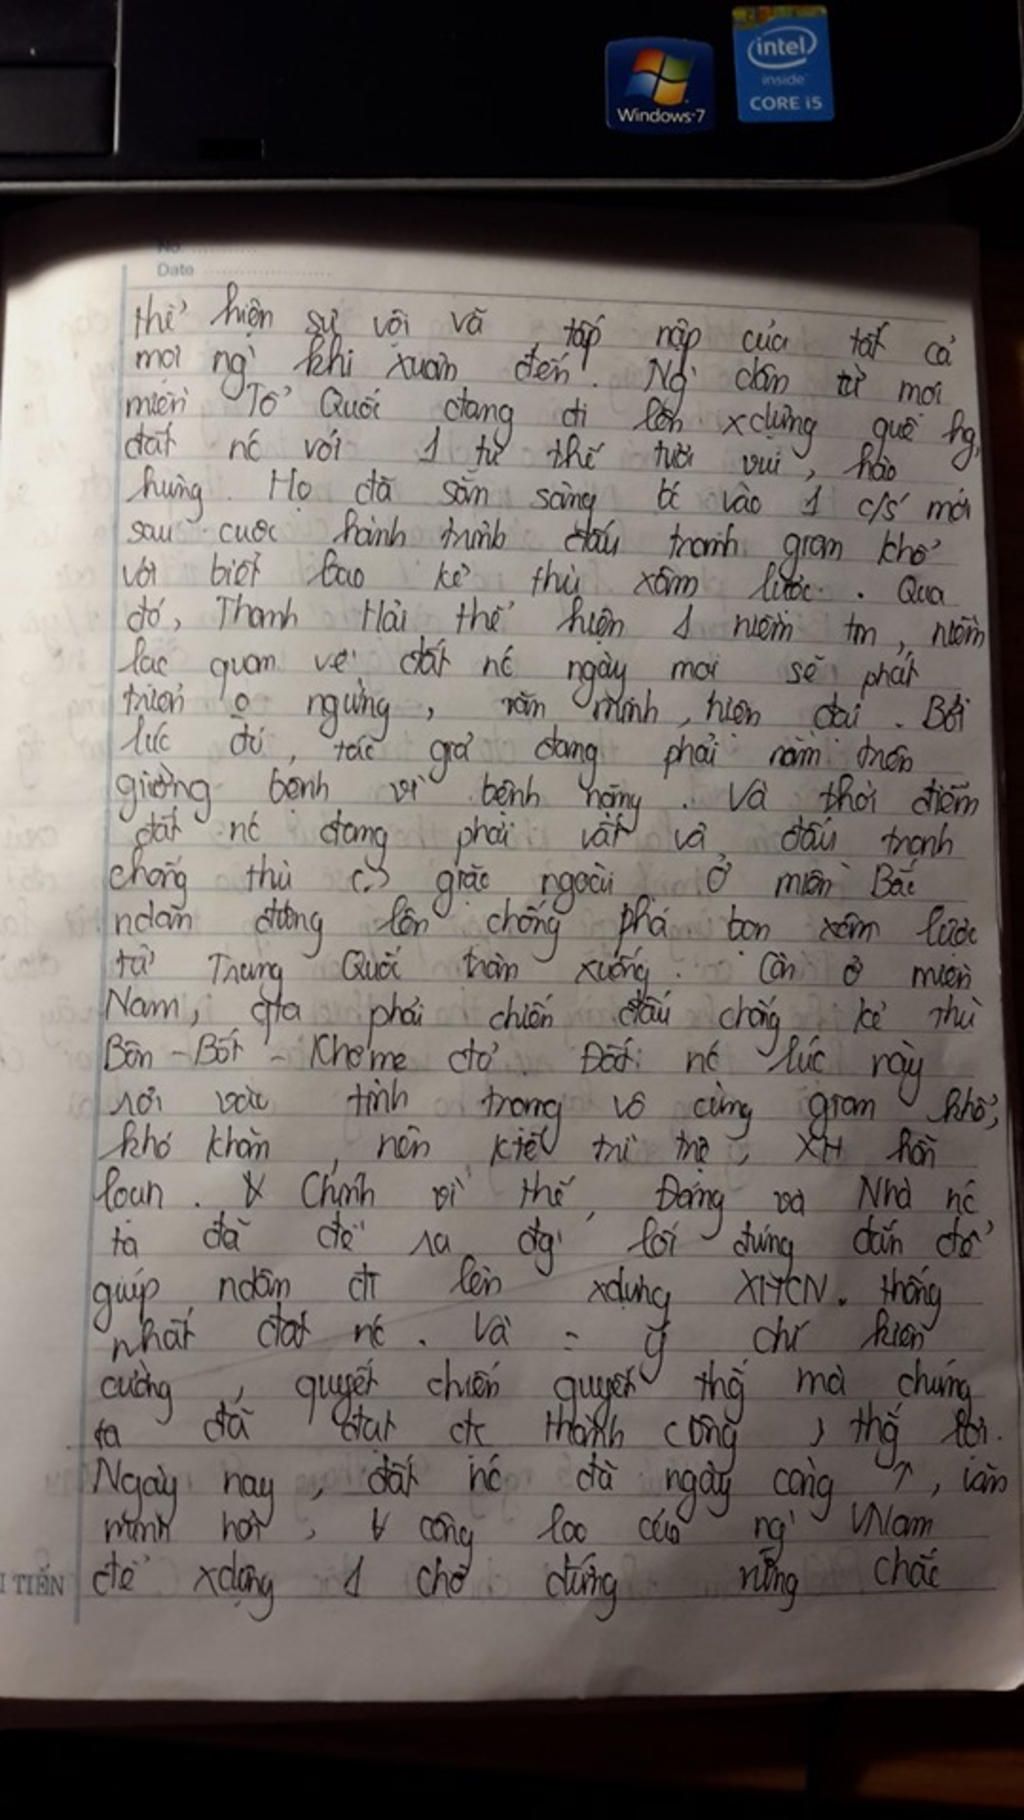 intel
inside
CORE i5
Windows 7
No
Date
thể hiện sự vội vã tấp nập của tất cả
mọi ng` khi xuân đến. Ng` dân từ mọi
miền Tổ Quốc đang đi lên xdựng quê hg,
đất nc với 1 tư thế tươi vui, hào
hùng. Họ đã sẵn sàng bc vào 1 c/s mới
sau cuộc hành trình đấu tranh gian khổ
với biết bao kẻ thù xâm lược. Qua
đó, Thanh Hải thể hiện 1 niềm tin, niềm
lạc quan về đất nc ngày mai sẽ phát
triển o ngừng, văn minh, hiện đại. Bởi
lúc đó, tác giả đang phải nằm trên
giường bệnh vì bệnh nặng. Và thời điểm
đất nc đang phải vất vả đấu tranh
chống thù giặc ngoài Ở miền Bắc
ndân đứng lên chống phá bọn xâm lược
từ Trung Quốc tràn xuống. Còn ở miền
Nam, phải chiến đấu chống kẻ thù
Bôn-Bốt-Khơme đỏ. Đất nc lúc này
rơi vào tình trạng vô cùng gian khổ,
khó khăn, nền ktế trì trệ, XH hỗn
loạn. Chính vì thế, Đảng và Nhà nc
ta đã đề ra đg` lối đúng đắn để
giúp ndân đi lên xdựng XHCN. thống
nhất đất nc. Và = ý chí kiên
cường, quyết chiến quyết thắg mà chúng
ta đã đạt đc thành công, thắg lợi.
Ngày nay, đất nc đã ngày càng ↑, văn
minh hơn, công lao của ng` VNam
để xdựng 1 chỗ đứng vững chắc
I TIẾN